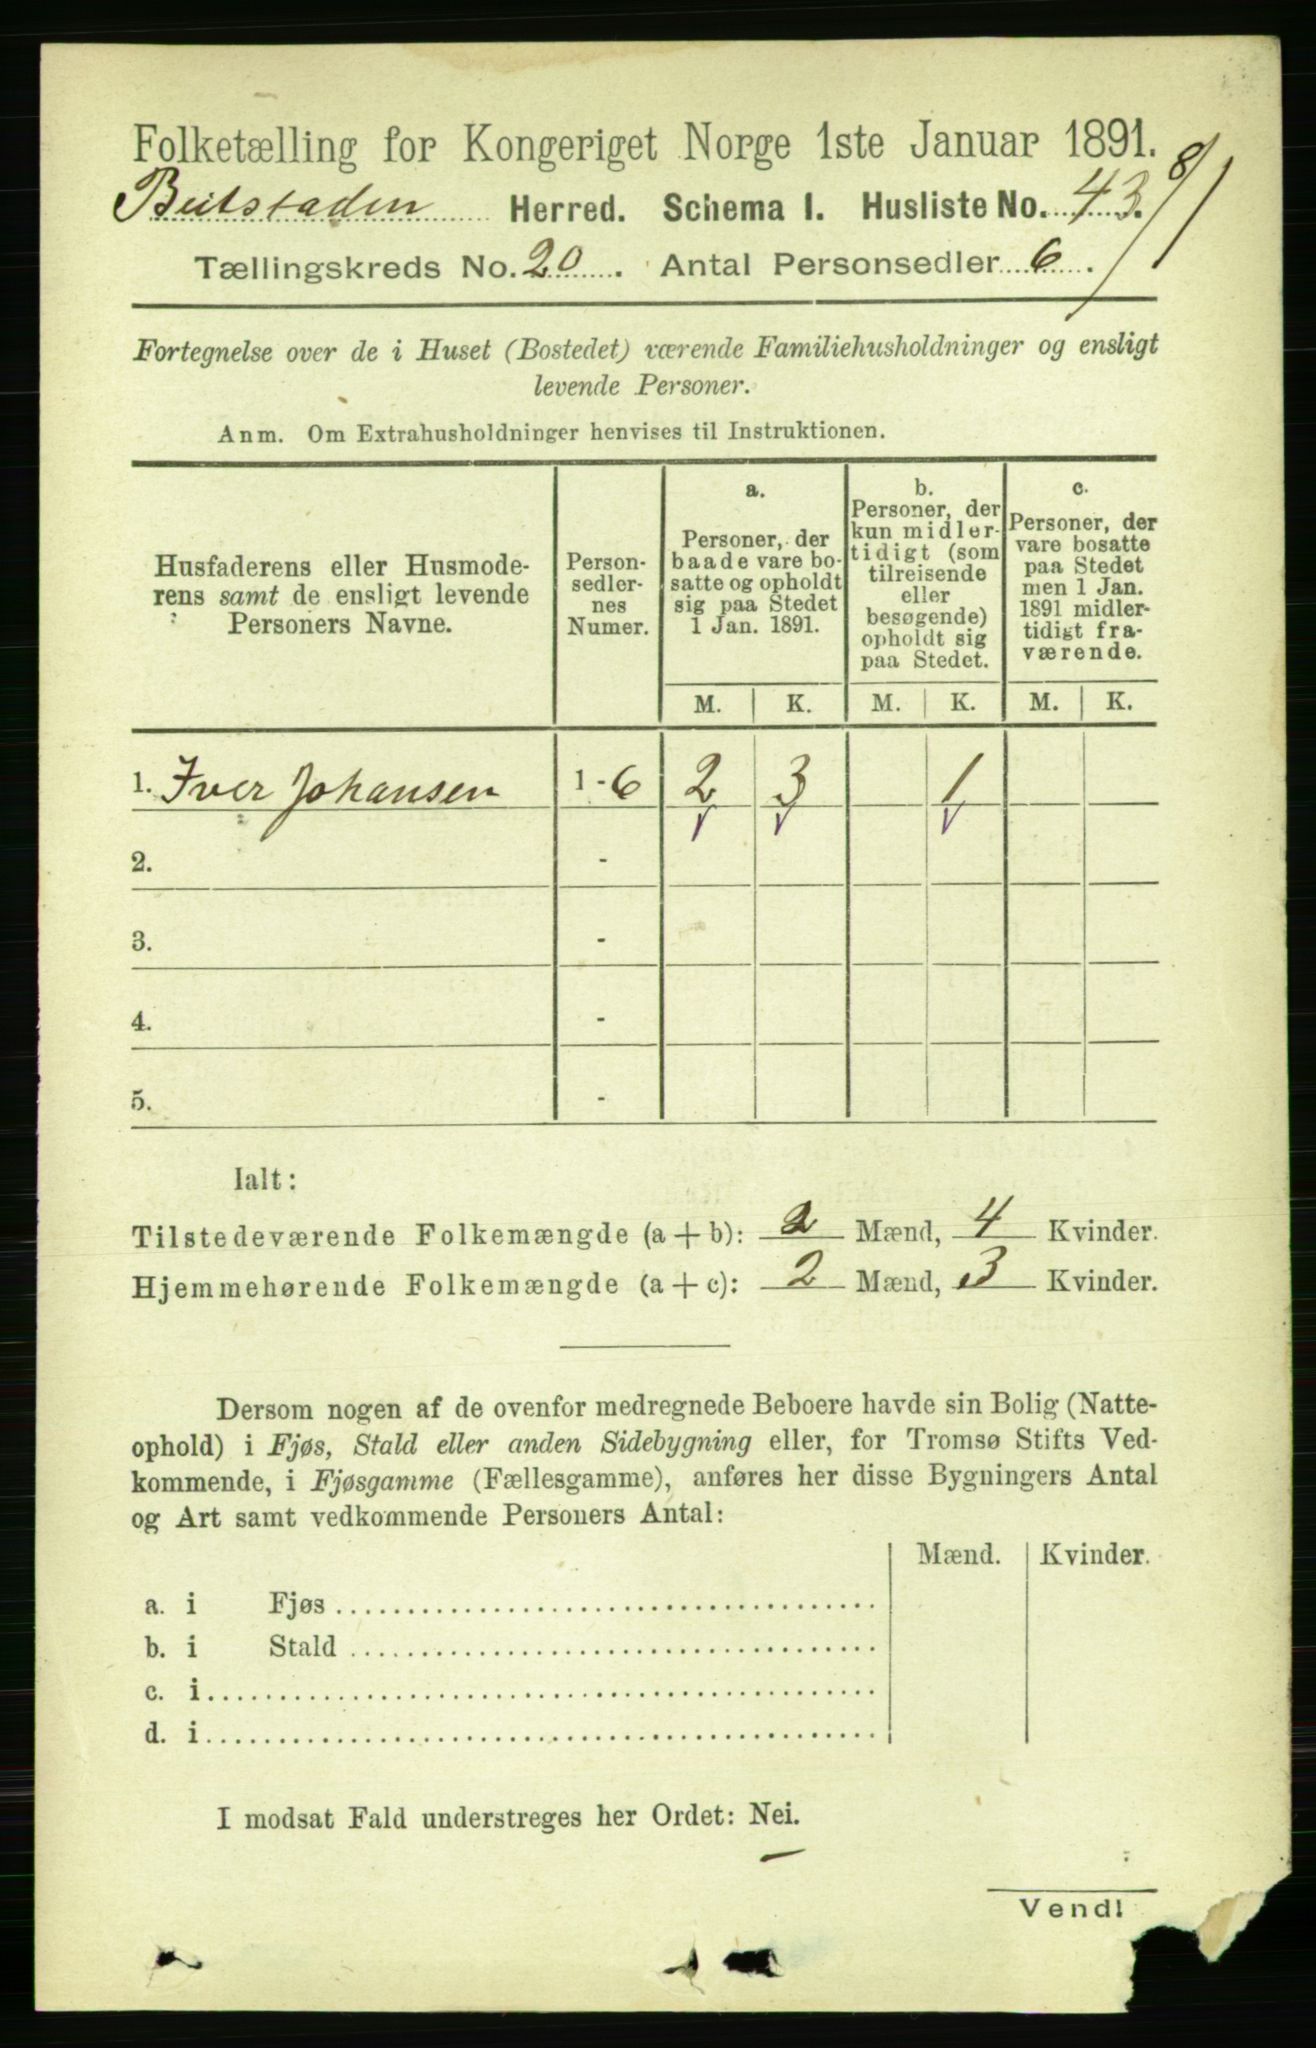 Folketælling for Kongeriget Norge 1ste Januar 1891.
Beitstaden Herred. Schema I. Husliste No. 43. 8/1
Tællingskreds No. 20. Antal Personsedler 6.
Fortegnelse over de i Huset (Bostedet) værende Familiehusholdninger og ensligt
levende Personer.
Anm. Om Extrahusholdninger henvises til Instruktionen.
Husfaderens eller Husmode-
rens samt de ensligt levende
Personers Navne.
Person-
sedler-
nes
Numer.
a.
Personer, der
baade vare bo-
satte og opholdt
sig paa Stedet
1 Jan. 1891.
b.
Personer, der
kun midler-
tidigt (som
tilreisende
eller
besøgende)
opholdt sig
paa Stedet.
c.
Personer, der
vare bosatte
paa Stedet
men 1 Jan.
1891 midler-
tidigt fra-
værende.
M. K. M. K. M. K.
1. Iver Johansen 1 - 6 2 3 1
2. -
3. -
4. -
5. -
Ialt:
Tilstedeværende Folkemængde (a + b): 2 Mænd, 4 Kvinder.
Hjemmehørende Folkemængde (a + c): 2 Mænd, 3 Kvinder.
Dersom nogen af de ovenfor medregnede Beboere havde sin Bolig (Natte-
ophold) i Fjøs, Stald eller anden Sidebygning eller, for Tromsø Stifts Ved-
kommende, i Fjøsgamme (Fællesgamme), anføres her disse Bygningers Antal
og Art samt vedkommende Personers Antal:
Mænd. Kvinder.
a. i Fjøs
b. i Stald
c. i
d. i
I modsat Fald understreges her Ordet: Nei.
Vend!